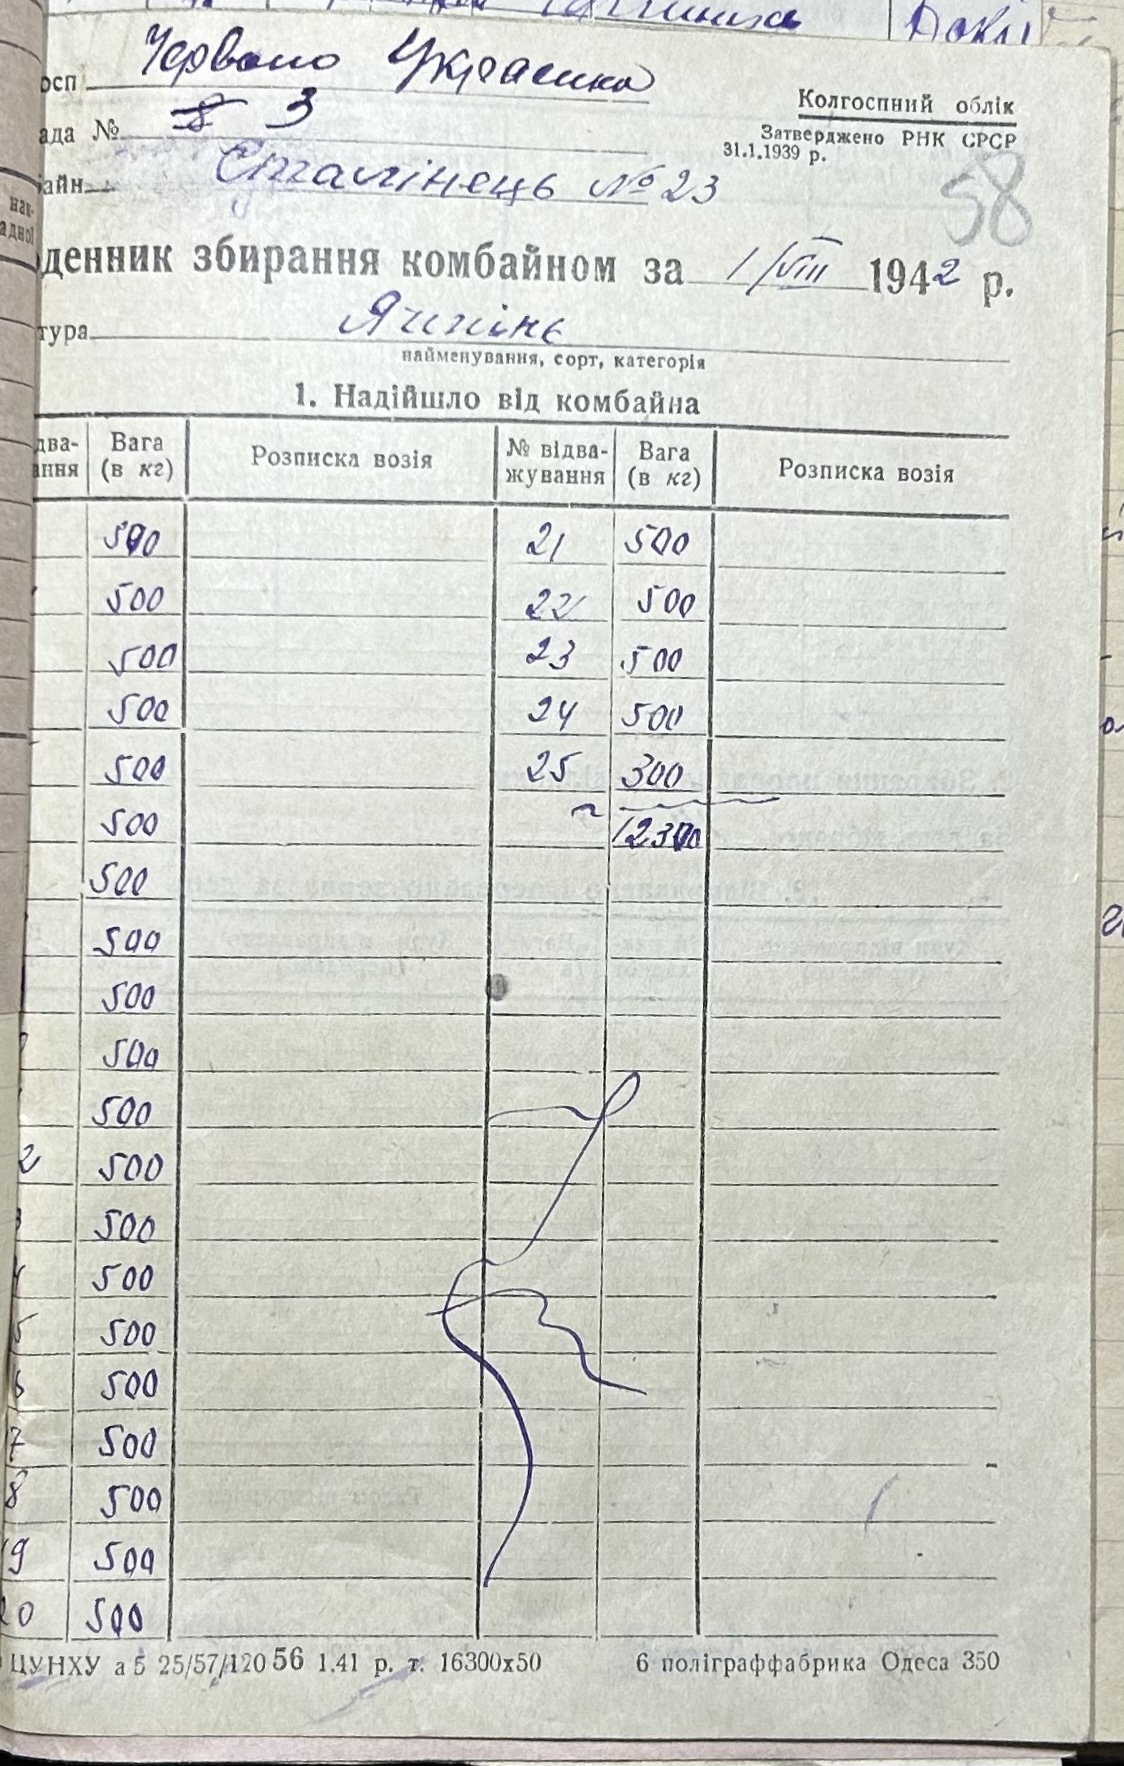 осп Червоно Украинка
ада № 3
айн Сталінець № 23
Колгоспний облік
Затверджено РНК СРСР
31.1.1939 р.
58
денник збирання комбайном за 1/VIII 1942 р.
тура Ячмінь
найменування, сорт, категорія
1. Надійшло від комбайна
два- Вага Розписка возія № відва- Вага Розписка возія
ння (в кг) жування (в кг)
500 21 500
500 22 500
500 23 500
500 24 500
500 25 300
500 12300
500
500
500
500
500
2 500
3 500
4 500
5 500
6 500
7 500
8 500
19 500
20 500
ЦУНХУ а 5 25/57/120 56 1.41 р. т. 16300x50 6 поліграффабрика Одеса 350